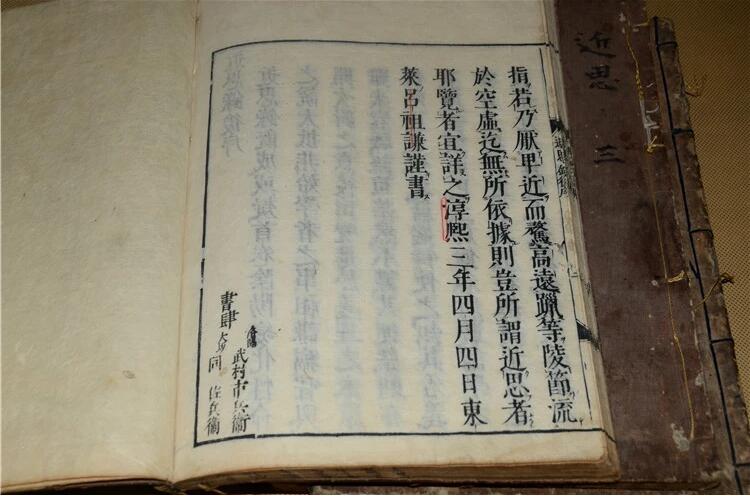 指若乃厭卑近而騖高遠躐等陵節流
於空虛迄無所依據則豈所謂近思者
耶覽者宜詳之淳熙三年四月四日東
萊呂祖謙謹書
書肆
武村市兵衛
同 佐兵衛
近思
三